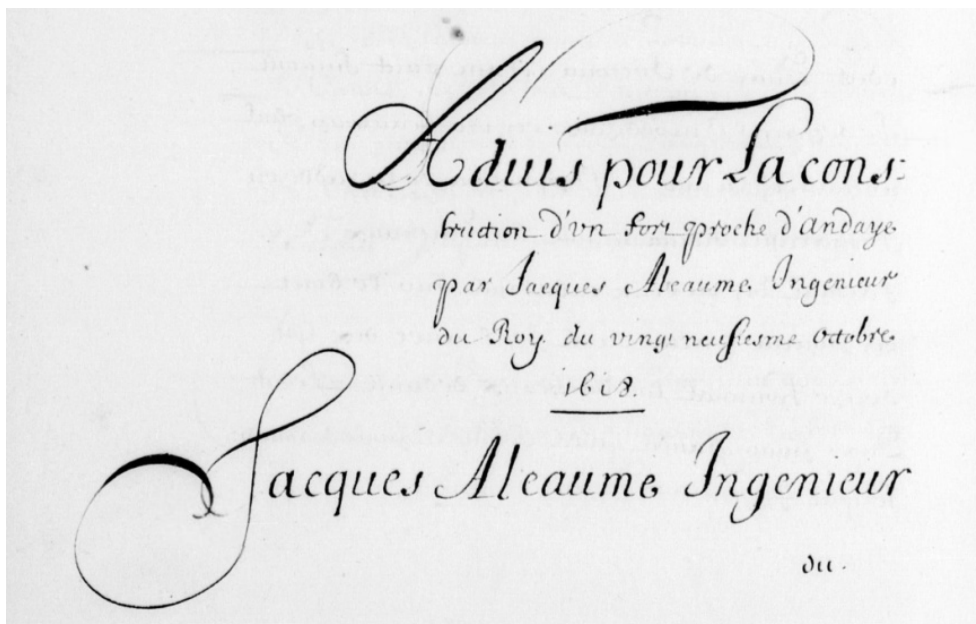 Aduis pour La cons-
truction d'vn fort proche d'andaye
par Jacques Aleaume Ingenieur
du Roy du vingt neufiesme octobre
1618.
Jacques Aleaume Ingenieur
du